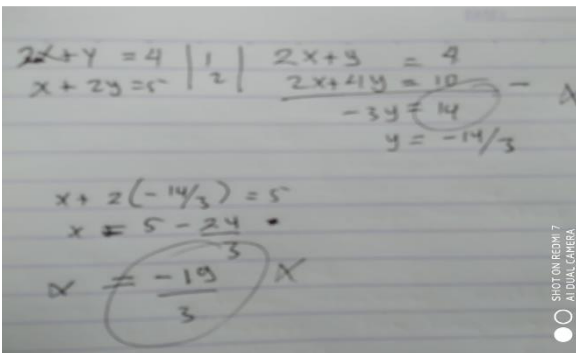 2x+y = 4 | 1 | 2x+y = 4
x + 2y = 5 | 2 | 2x+4y = 10 -
-3y = 14
y = -14/3
x + 2(-14/3) = 5
x = 5 - 24/3
x = -19/3 x
SHOT ON REDMI 7
AI DUAL CAMERA